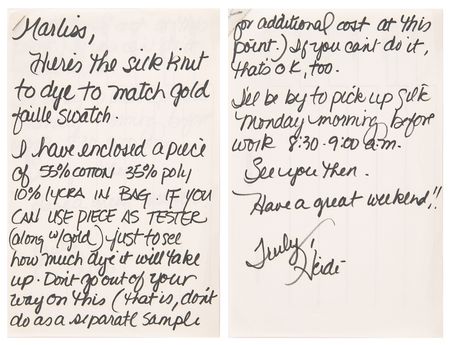 Marliss,
Here's the silk knit
to dye to match gold
faille swatch.
I have enclosed a piece
of 55% COTTON 35% poly
10% lycra IN BAG. IF YOU
CAN USE PIECE AS TESTER
(along w/gold) - just to see
how much dye it will take
up. Don't go out of your
way on this (that is, don't
do as a separate sample
for additional cost at this
point.) If you can't do it,
that's ok, too.
I'll be by to pick up silk
Monday morning before
work 8:30-9:00 a.m.
See you then.
Have a great weekend!!
Truly,
Heidi